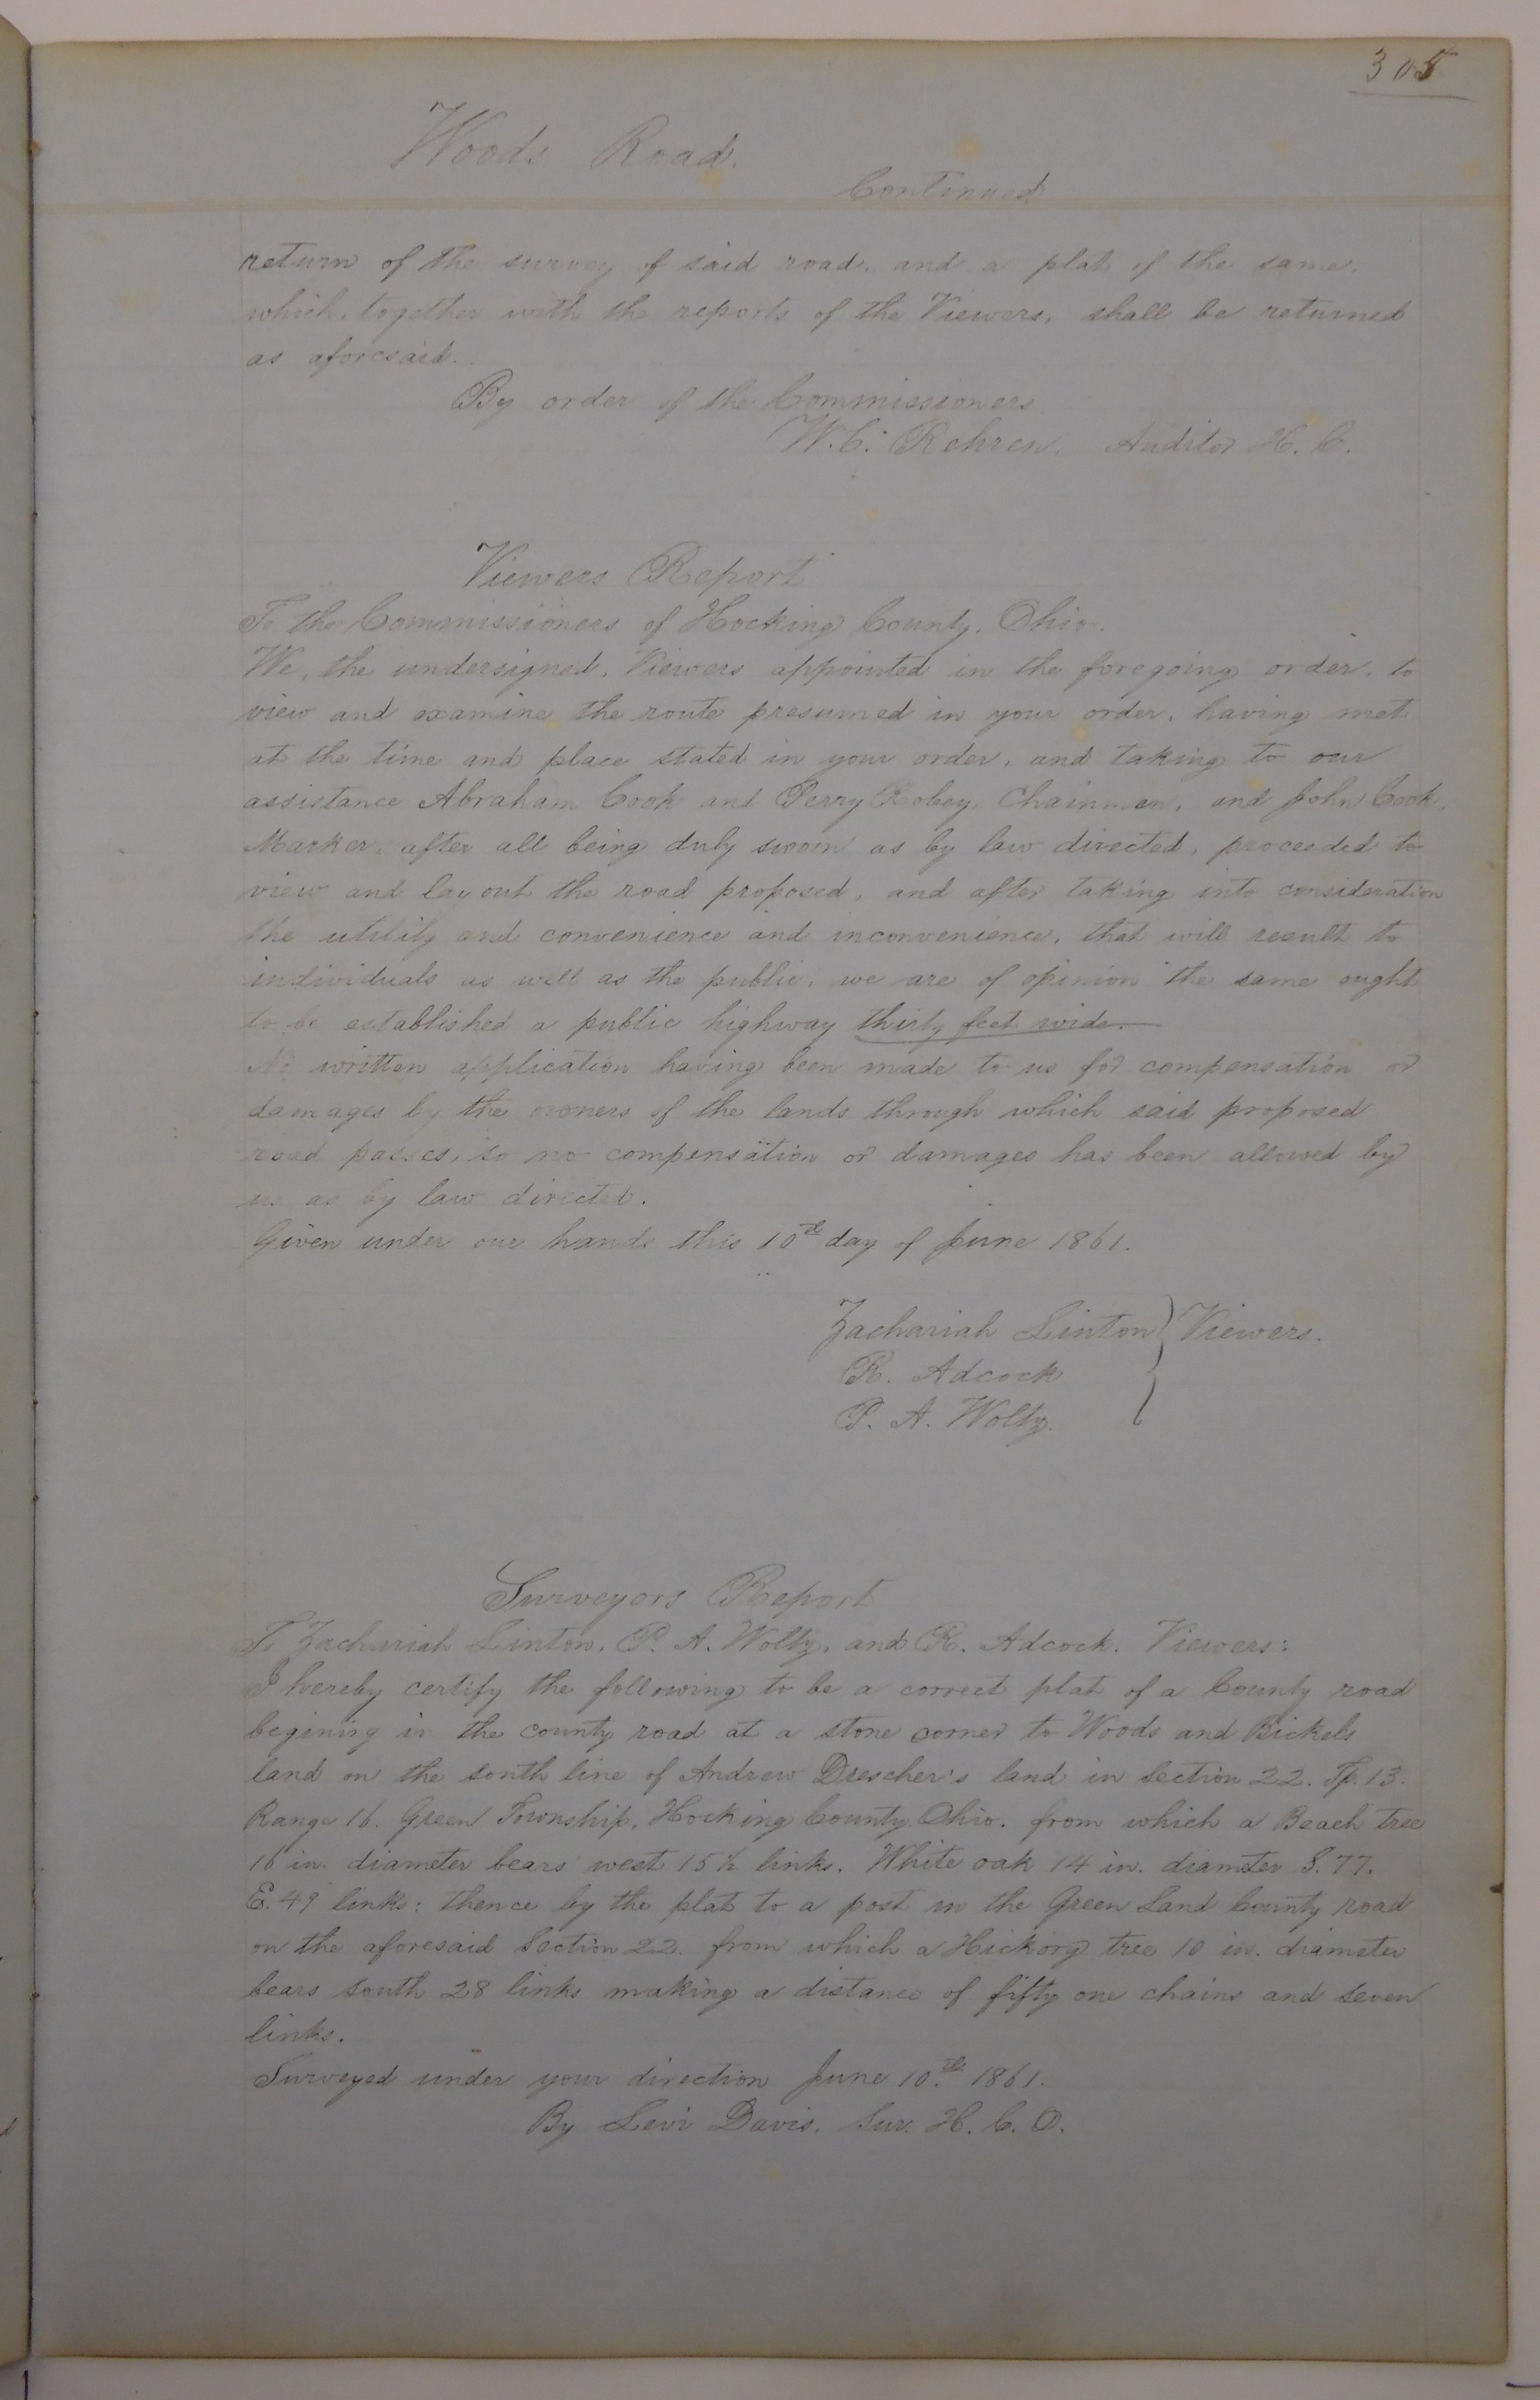 305
Woods Road.
Continued
return of the survey of said road, and a plat of the same,
which, together with the reports of the Viewers, shall be returned
as aforesaid.
By order of the Commissioners
W. C. Rehren, Auditor H. C.
Viewers Report
To the Commissioners of Hocking County, Ohio.
We, the undersigned, Viewers appointed in the foregoing order, to
view and examine the route presumed in your order, having met
at the time and place stated in your order, and taking to our
assistance Abraham Cook and Perry Robey, Chainmen, and John Cook,
Marker, after all being duly sworn as by law directed, proceeded to
view and lay out the road proposed, and after taking into consideration
the utility and convenience and inconvenience, that will result to
individuals as well as the public, we are of opinion the same ought
to be established a public highway thirty feet wide.
No written application having been made to us for compensation or
damages by the owners of the lands through which said proposed
road passes, so no compensation or damages has been allowed by
us as by law directed.
Given under our hands this 10th day of June 1861.
Zachariah Linton } Viewers.
R. Adcock
P. A. Woltz.
Surveyors Report
To Zachariah Linton, P. A. Woltz, and R. Adcock. Viewers:
I hereby certify the following to be a correct plat of a County road
begining in the county road at a stone corner to Woods and Bickels
land on the south line of Andrew Drescher's land in Section 22. Tp. 13.
Range 16. Green Township, Hocking County Ohio. from which a Beach tree
16 in. diameter bears west 15½ links. White oak 14 in. diameter S. 77.
E. 49 links: thence by the plat to a post in the Green Land County road
on the aforesaid Section 22. from which a Hickory tree 10 in. diameter
bears south 28 links making a distance of fifty one chains and seven
links.
Surveyed under your direction June 10th 1861.
By Levi Davis. Sur. H. C. O.